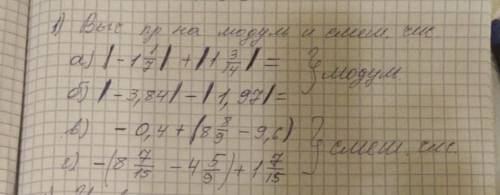 1) Выс пр. на модуль и смеш. чис.
а) |-1 1/7| + |1 3/14| = } модуль
б) |-3,84| - |1,97| =
в) - 0,4 + (8 8/9 - 9,6) } смеш. чис.
г) -(8 7/15 - 4 5/9) + 1 7/15